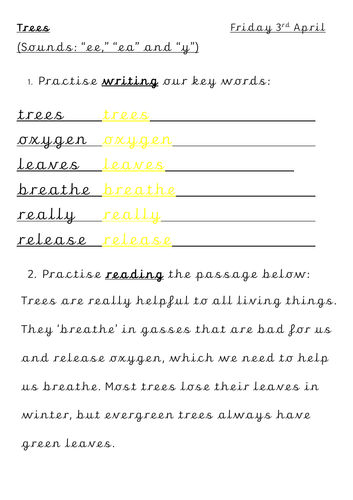 Trees Friday 3rd April
(Sounds: “ee,” “ea” and “y”)
1. Practise writing our key words:
trees trees
oxygen oxygen
leaves leaves
breathe breathe
really really
release release
2. Practise reading the passage below:
Trees are really helpful to all living things.
They ‘breathe’ in gasses that are bad for us
and release oxygen, which we need to help
us breathe. Most trees lose their leaves in
winter, but evergreen trees always have
green leaves.